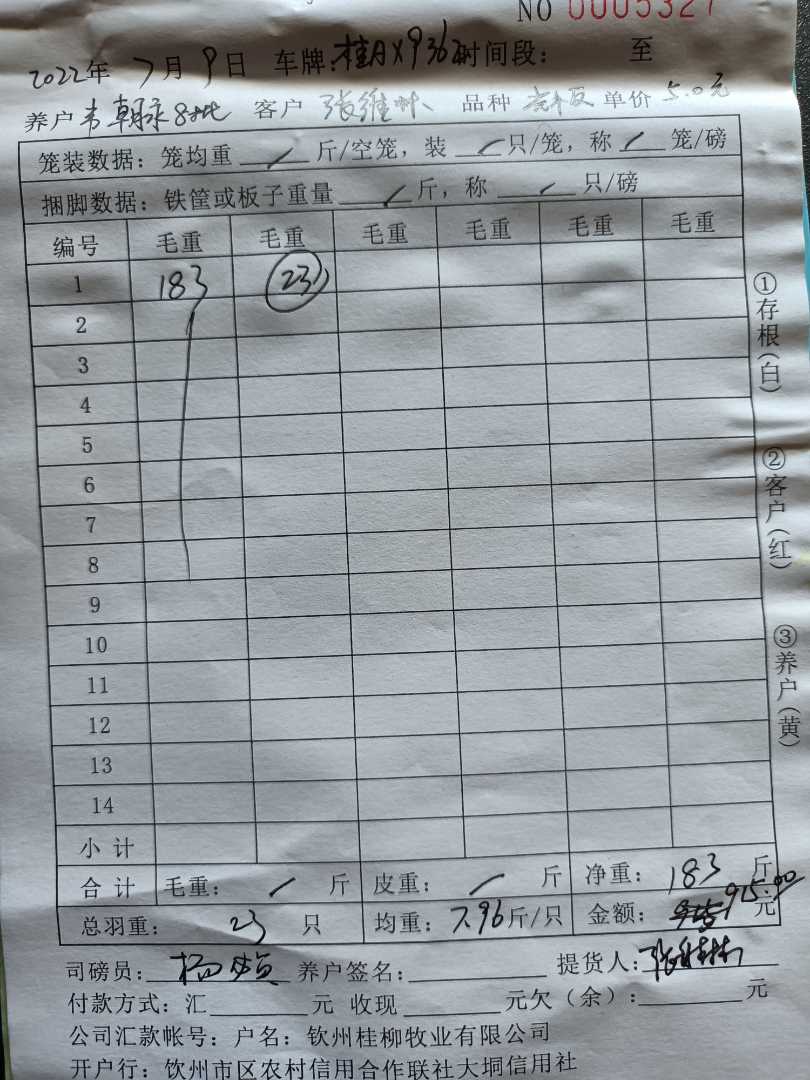 NO 0005327
2022年 7月9日 车牌: 时间段: 至
养户 韦朝录 客户 张维 品种 单价 5.0元
笼装数据: 笼均重 / 斤/空笼, 装 / 只/笼, 称 / 笼/磅
捆脚数据: 铁筐或板子重量 / 斤, 称 / 只/磅
编号 毛重 毛重 毛重 毛重 毛重 毛重
1 183 23
2
3
4
5
6
7
8
9
10
11
12
13
14
小计
合计 毛重: / 斤 皮重: / 斤 净重: 183 斤
总羽重: 23 只 均重: 7.96 斤/只 金额: 915.00 元
司磅员: 杨 养户签名: 提货人: 张
付款方式: 汇 元 收现 元欠(余): 元
公司汇款帐号: 户名: 钦州桂柳牧业有限公司
开户行: 钦州市区农村信用合作联社大垌信用社
①存根(白) ②客户(红) ③养户(黄)